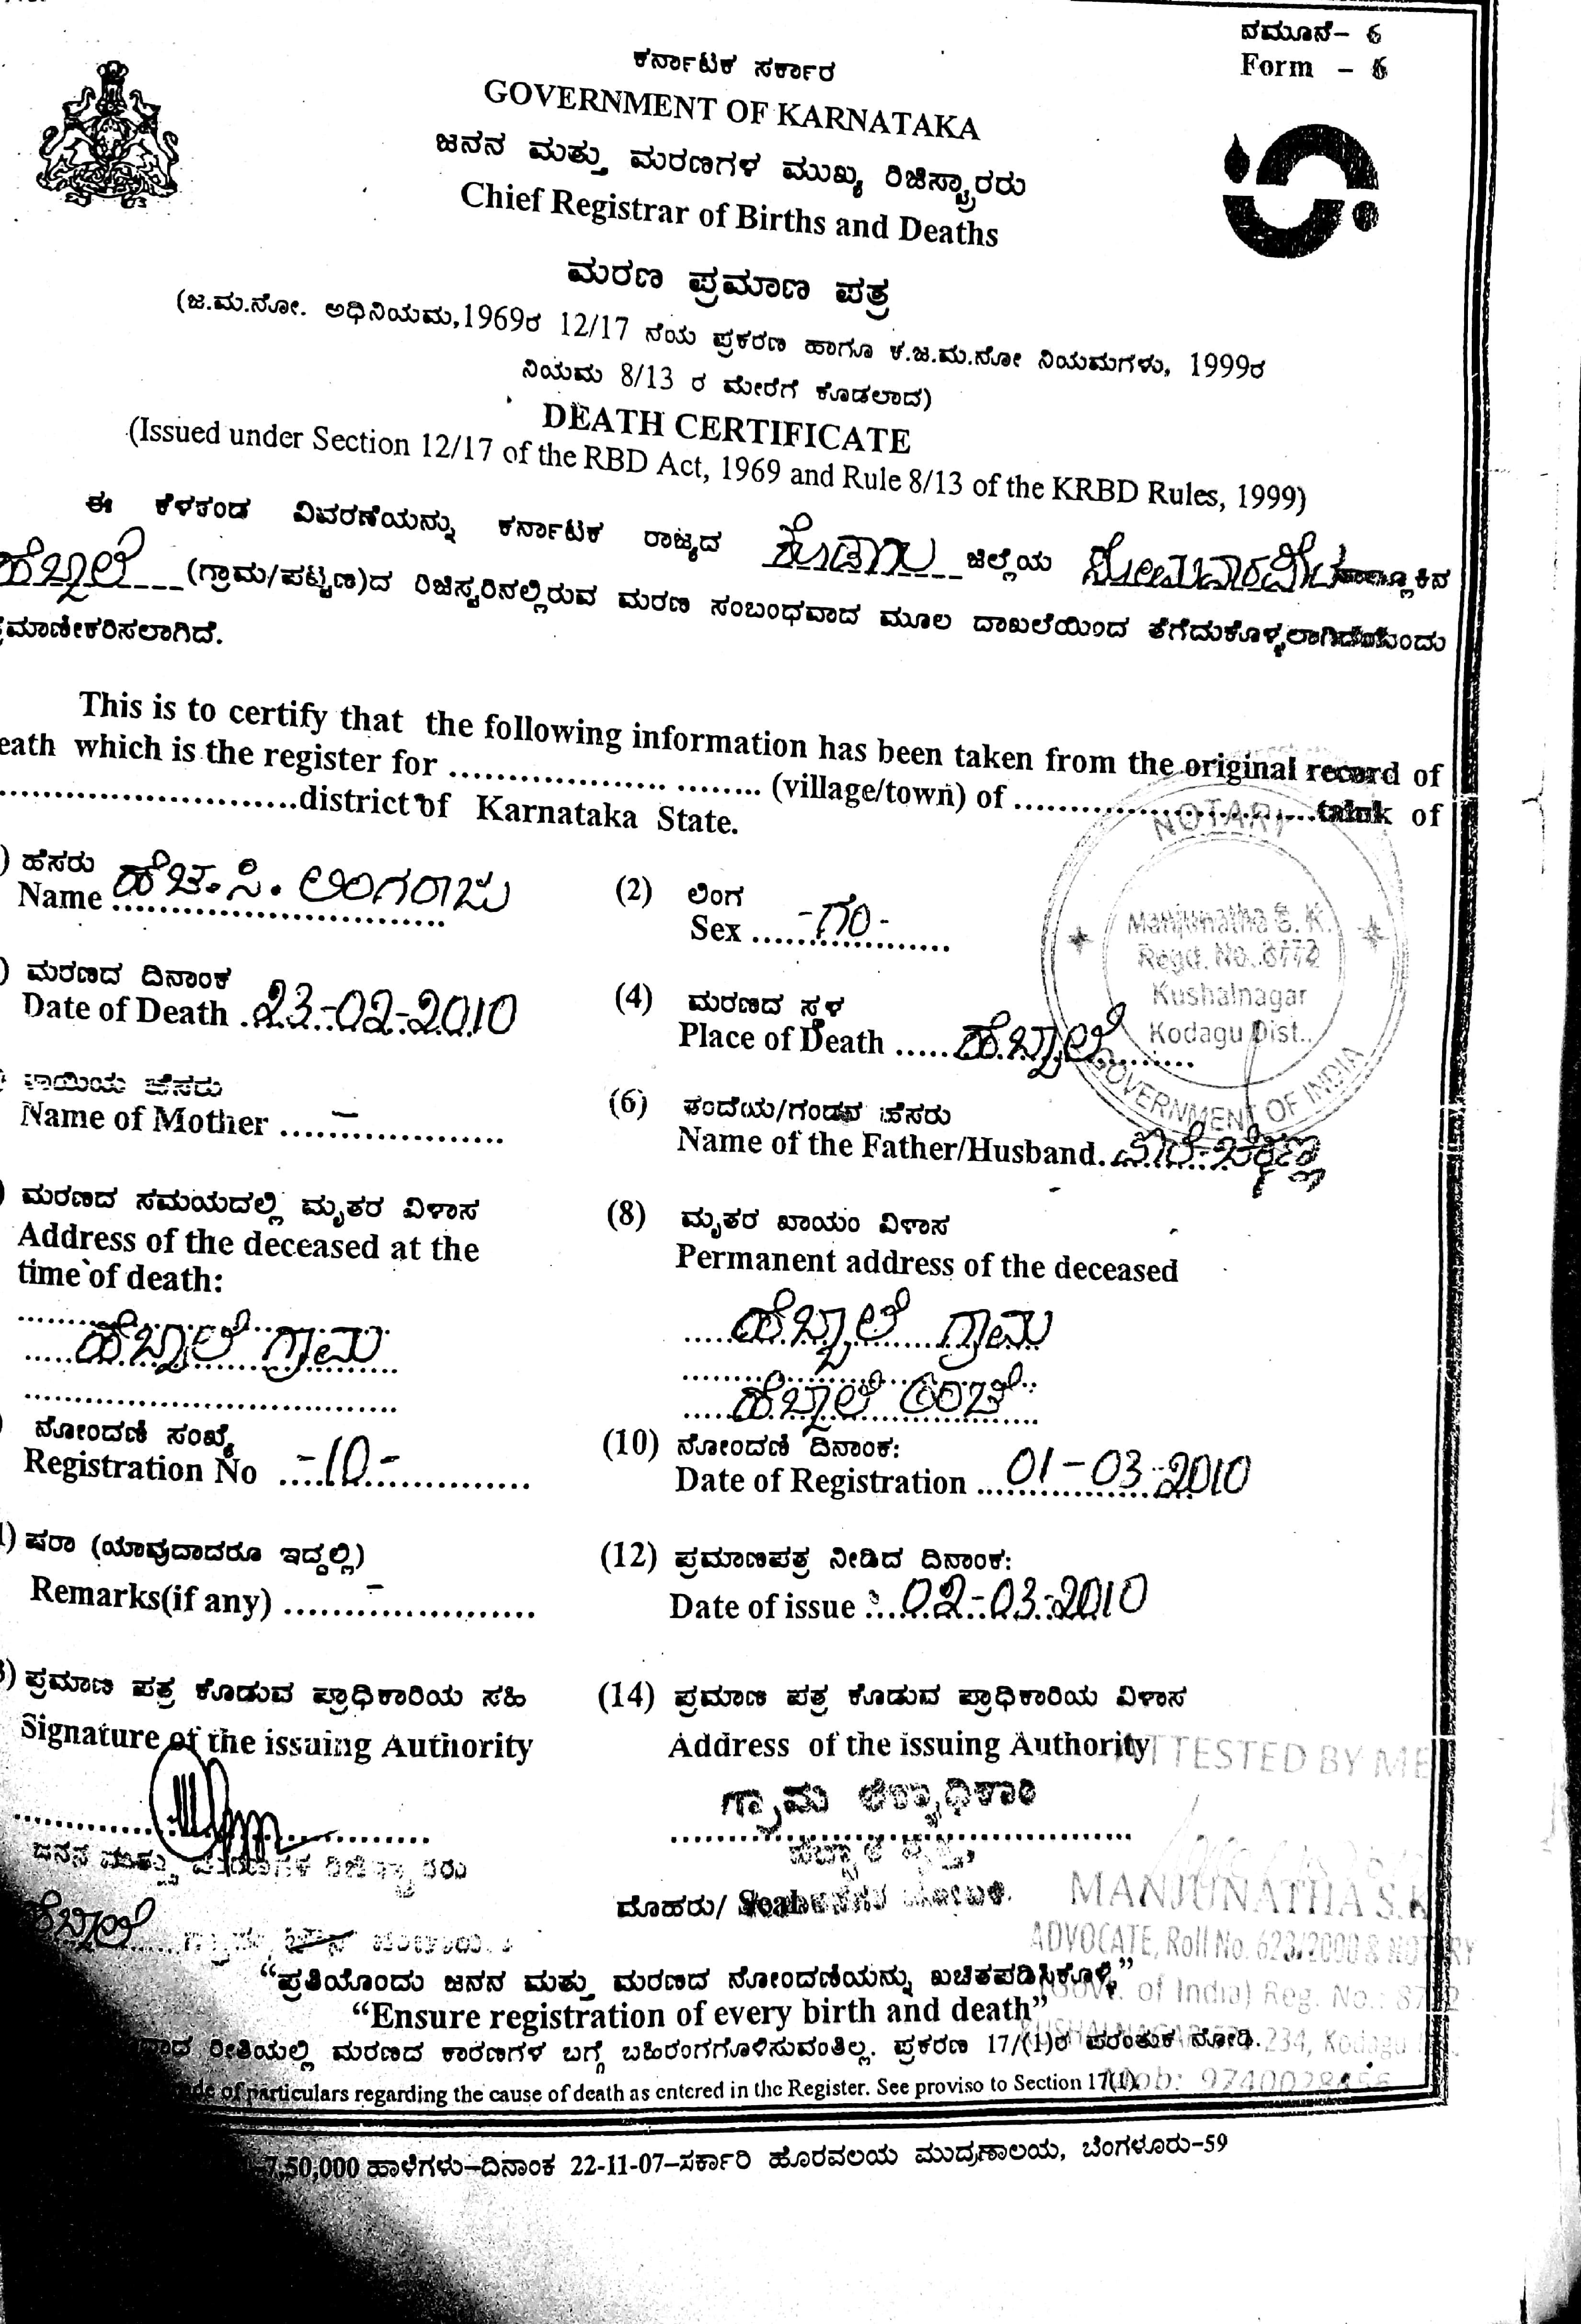 ನಮೂನೆ- 6
Form - 6
ಕರ್ನಾಟಕ ಸರ್ಕಾರ
GOVERNMENT OF KARNATAKA
ಜನನ ಮತ್ತು ಮರಣಗಳ ಮುಖ್ಯ ರಿಜಿಸ್ಟ್ರಾರರು
Chief Registrar of Births and Deaths
ಮರಣ ಪ್ರಮಾಣ ಪತ್ರ
(ಜ.ಮ.ನೋ. ಅಧಿನಿಯಮ,1969ರ 12/17 ನೆಯ ಪ್ರಕರಣ ಹಾಗೂ ಕ.ಜ.ಮ.ನೋ ನಿಯಮಗಳು, 1999ರ
ನಿಯಮ 8/13 ರ ಮೇರೆಗೆ ಕೊಡಲಾದ)
DEATH CERTIFICATE
(Issued under Section 12/17 of the RBD Act, 1969 and Rule 8/13 of the KRBD Rules, 1999)
ಈ ಕೆಳಕಂಡ ವಿವರಣೆಯನ್ನು ಕರ್ನಾಟಕ ರಾಜ್ಯದ ಕೊಡಗು ಜಿಲ್ಲೆಯ ಸೋಮವಾರಪೇಟೆ
ಹೆಬ್ಬಾಲೆ (ಗ್ರಾಮ/ಪಟ್ಟಣ)ದ ರಿಜಿಸ್ಟರಿನಲ್ಲಿರುವ ಮರಣ ಸಂಬಂಧವಾದ ಮೂಲ ದಾಖಲೆಯಿಂದ
ಮಾಣೀಕರಿಸಲಾಗಿದೆ.
This is to certify that the following information has been taken from the original record of
eath which is the register for .................. ........ (village/town) of .......................... taluk of
..........................district of Karnataka State.
) ಹೆಸರು
Name ಹೆಚ್.ಸಿ. ಲಿಂಗರಾಜು
(2) ಲಿಂಗ
Sex -ಗಂ-
NOTARY
Manjunatha S. K.
Regd. No. 8772
Kushalnagar
Kodagu Dist..
GOVERNMENT OF INDIA
) ಮರಣದ ದಿನಾಂಕ
Date of Death 23-02-2010
(4) ಮರಣದ ಸ್ಥಳ
Place of Death ಹೆಬ್ಬಾಲೆ
ತಾಯಿಯ ಹೆಸರು
Name of Mother -
(6) ತಂದೆಯ/ಗಂಡನ ಹೆಸರು
Name of the Father/Husband.
) ಮರಣದ ಸಮಯದಲ್ಲಿ ಮೃತರ ವಿಳಾಸ
Address of the deceased at the
time of death:
ಹೆಬ್ಬಾಲೆ ಗ್ರಾಮ
(8) ಮೃತರ ಖಾಯಂ ವಿಳಾಸ
Permanent address of the deceased
ಹೆಬ್ಬಾಲೆ ಗ್ರಾಮ
ಹೆಬ್ಬಾಲೆ ಅಂಚೆ
) ನೋಂದಣಿ ಸಂಖ್ಯೆ
Registration No -10-
(10) ನೋಂದಣಿ ದಿನಾಂಕ:
Date of Registration 01-03-2010
) ಷರಾ (ಯಾವುದಾದರೂ ಇದ್ದಲ್ಲಿ)
Remarks(if any) -
(12) ಪ್ರಮಾಣಪತ್ರ ನೀಡಿದ ದಿನಾಂಕ:
Date of issue : 02-03-2010
) ಪ್ರಮಾಣ ಪತ್ರ ಕೊಡುವ ಪ್ರಾಧಿಕಾರಿಯ ಸಹಿ
Signature of the issuing Authority
(14) ಪ್ರಮಾಣ ಪತ್ರ ಕೊಡುವ ಪ್ರಾಧಿಕಾರಿಯ ವಿಳಾಸ
Address of the issuing Authority
ATTESTED BY ME
ಗ್ರಾಮ ಲೆಕ್ಕಾಧಿಕಾರಿ
ಜನನ ಮತ್ತು ಮರಣಗಳ ರಿಜಿಸ್ಟ್ರಾರರು
ಹೆಬ್ಬಾಲೆ ವೃತ್ತ,
ಮೊಹರು/ Seal
ಹೆಬ್ಬಾಲೆ
MANJUNATHA S.K
ADVOCATE, Roll No. 623/2000 & NOTARY
(Govt. of India) Reg. No.: 8772
“ಪ್ರತಿಯೊಂದು ಜನನ ಮತ್ತು ಮರಣದ ನೋಂದಣಿಯನ್ನು ಖಚಿತಪಡಿಸಿಕೊಳ್ಳಿ”
“Ensure registration of every birth and death”
KUSHALNAGAR-571 234, Kodagu
ರೀತಿಯಲ್ಲಿ ಮರಣದ ಕಾರಣಗಳ ಬಗ್ಗೆ ಬಹಿರಂಗಗೊಳಿಸುವಂತಿಲ್ಲ. ಪ್ರಕರಣ 17/(1)ರ ಪರಂತುಕ ನೋಡಿ.
of particulars regarding the cause of death as entered in the Register. See proviso to Section 17(1).
7,50,000 ಹಾಳೆಗಳು-ದಿನಾಂಕ 22-11-07-ಸರ್ಕಾರಿ ಹೊರವಲಯ ಮುದ್ರಣಾಲಯ, ಬೆಂಗಳೂರು-59